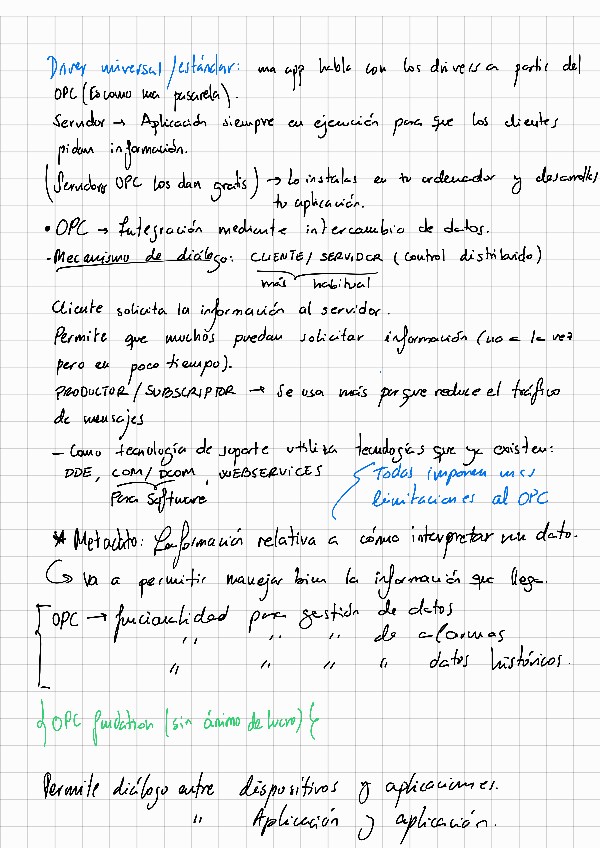 Driver universal/estándar: una app habla con los drivers a partir del
OPC (Es como una pasarela).
Servidor → Aplicación siempre en ejecución para que los clientes
pidan información.
(Servidores OPC los dan gratis) → Lo instalas en tu ordenador y desarrollas
tu aplicación.
• OPC → Integración mediante intercambio de datos.
- Mecanismo de diálogo: CLIENTE/SERVIDOR (Control distribuido)
más habitual
Cliente solicita la información al servidor.
Permite que muchos puedan solicitar información (no a la vez
pero en poco tiempo).
PRODUCTOR/SUBSCRIPTOR → Se usa más porque reduce el tráfico
de mensajes
- Como tecnología de soporte utiliza tecnologías que ya existen:
DDE, COM/DCOM, WEBSERVICES
Para Software
Todas imponen unas
limitaciones al OPC
* Metadato: Información relativa a cómo interpretar un dato.
↳ Va a permitir manejar bien la información que llega.
OPC → funcionalidad para gestión de datos
" " " de alarmas
" " " " datos históricos.
{ OPC fundation (sin ánimo de lucro) {
Permite diálogo entre dispositivos y aplicaciones.
" Aplicación y aplicación.